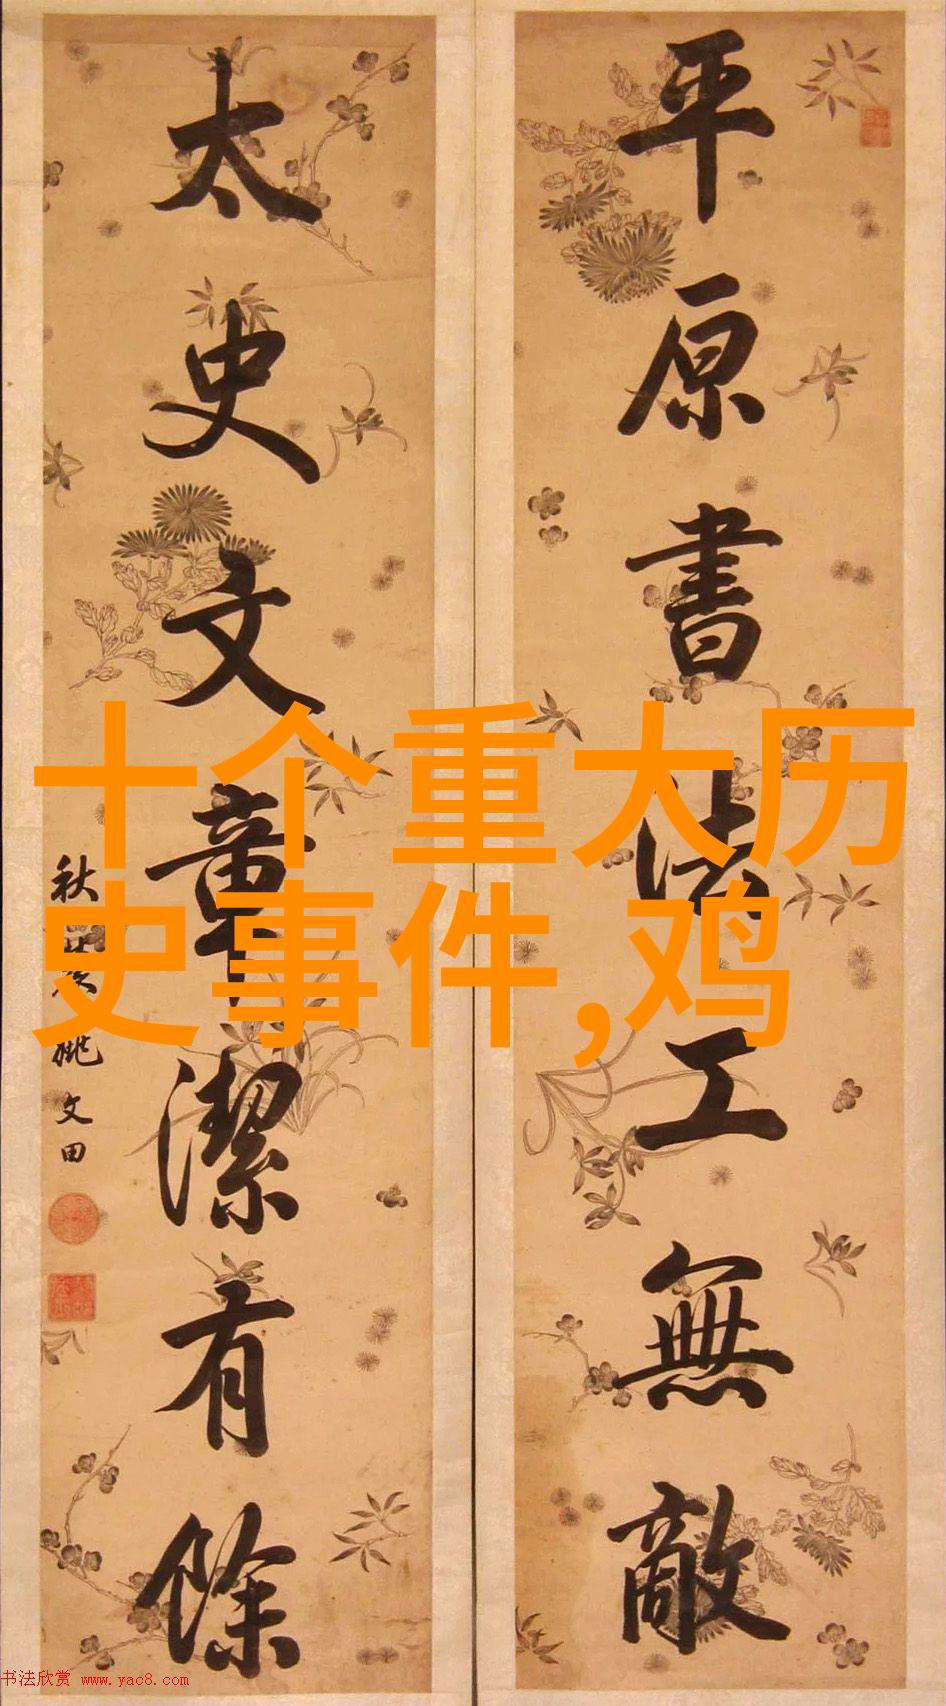 平原書法工無敵
太史文章潔有餘
秋農姚文田
十个重大历
史事件,鸡
书法欣赏 www.yac8.com